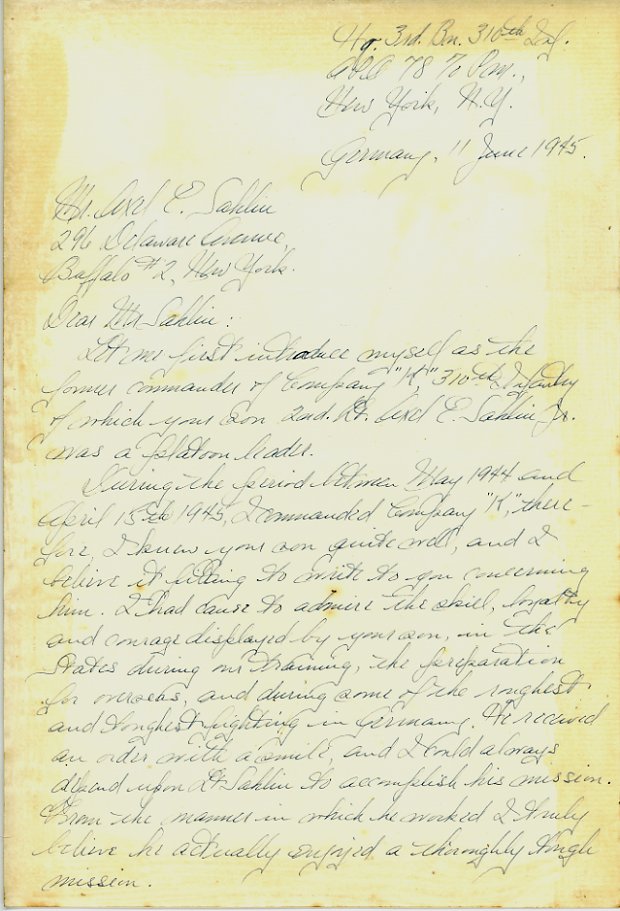 Hq. 3rd. Bn. 310th Inf.
APO 78 % P.M.,
New York, N.Y.
Germany, 11 June 1945.
Mr. Axel E. Sahlin
296 Delaware Avenue,
Buffalo #2, New York.
Dear Mr Sahlin:
Let me first introduce myself as the
former commander of Company "K," 310th Infantry
of which your son 2nd. Lt. Axel E. Sahlin Jr.
was a platoon leader.
During the period between May 1944 and
April 15th 1945, I commanded Company "K", there-
fore, I knew your son quite well, and I
believe it fitting to write to you concerning
him. I had cause to admire the skill, loyalty
and courage displayed by your son, in the
States during our training, the preparation
for overseas, and during some of the roughest
and toughest fighting in Germany. He received
an order with a smile, and I could always
depend upon Lt Sahlin to accomplish his mission.
From the manner in which he worked I truly
believe he actually enjoyed a thoroughly tough
mission.